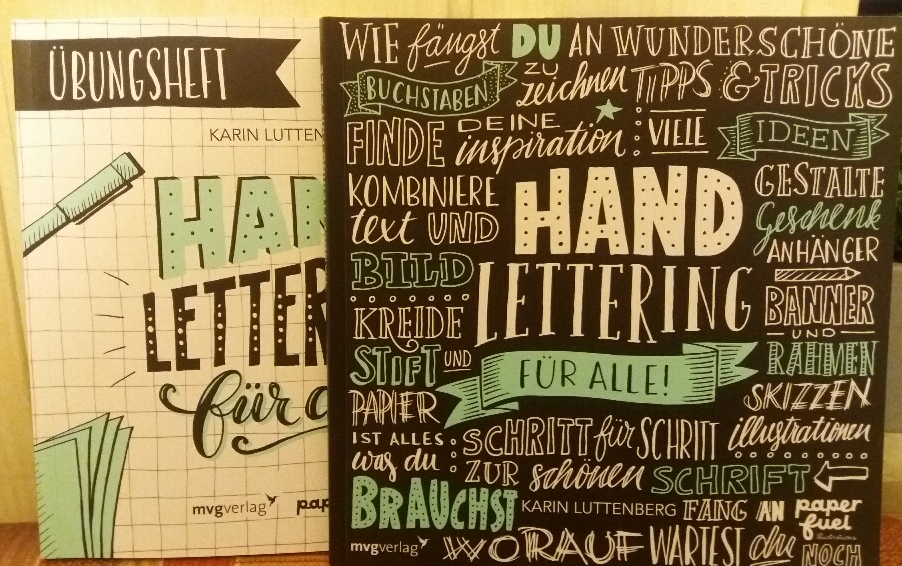 ÜBUNGSHEFT
KARIN LUTTEN
HAN
LETTER
für a
mvgverlag pap
WIE fängst DU AN WUNDERSCHÖNE
BUCHSTABEN ZU zeichnen TIPPS & TRICKS
FINDE DEINE inspiration VIELE IDEEN
KOMBINIERE
text UND
BILD
KREIDE
STIFT UND
PAPIER
IST ALLES
was du
BRAUCHST
HAND
LETTERING
FÜR ALLE!
GESTALTE
Geschenk
ANHÄNGER
BANNER
UND
RAHMEN
SKIZZEN
illustrationen
SCHRITT für SCHRITT
ZUR schönen SCHRIFT
KARIN LUTTENBERG FANG AN
paper
fuel
illustrations
mvgverlag WORAUF WARTEST du NOCH